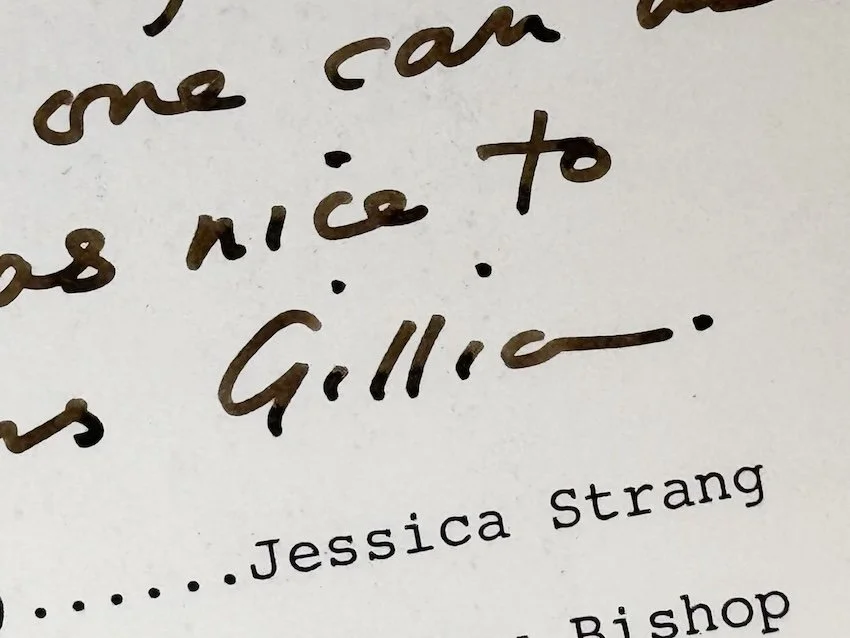 one can
as nice to
Gillian.
......Jessica Strang
Bishop